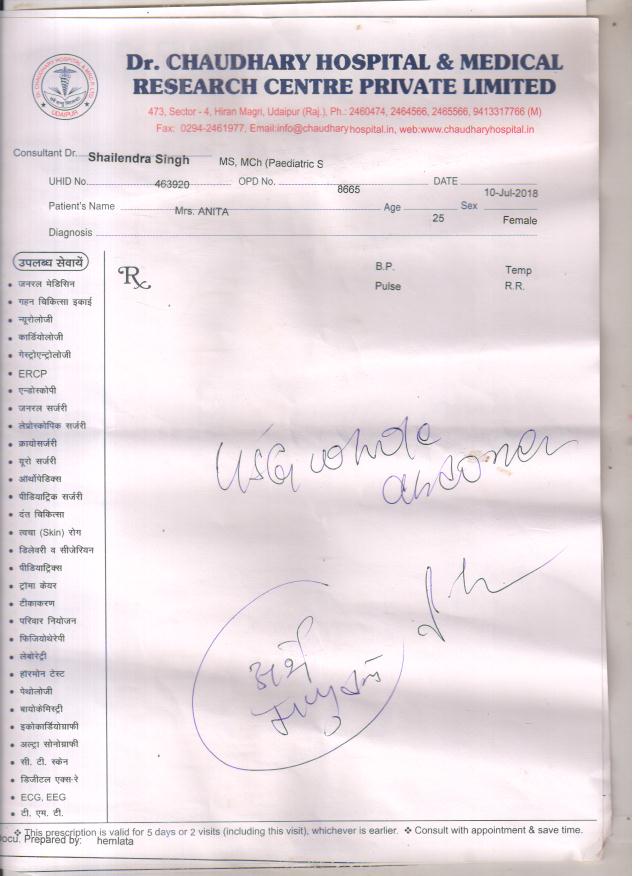 Dr. CHAUDHARY HOSPITAL & MEDICAL
RESEARCH CENTRE PRIVATE LIMITED
473, Sector - 4, Hiran Magri, Udaipur (Raj.), Ph.: 2460474, 2464566, 2465566, 9413317766 (M)
Fax: 0294-2461977, Email:info@chaudharyhospital.in, web:www.chaudharyhospital.in
Consultant Dr. Shailendra Singh MS, MCh (Paediatric S
UHID No. 463920 OPD No. 8665 DATE 10-Jul-2018
Patient's Name Mrs. ANITA Age 25 Sex Female
Diagnosis
उपलब्ध सेवायें
Rx B.P. Temp
Pulse R.R.
• जनरल मेडिसिन
• गहन चिकित्सा इकाई
• न्यूरोलोजी
• कार्डियोलोजी
• गेस्ट्रोएन्ट्रोलोजी
• ERCP
• एन्डोस्कोपी
• जनरल सर्जरी
• लेप्रोस्कोपिक सर्जरी
• कायोसर्जरी
• यूरो सर्जरी
• ऑर्थोपेडिक्स
• पीडियाट्रिक सर्जरी
• दंत चिकित्सा
• त्वचा (Skin) रोग
• डिलेवरी व सीजेरियन
• पीडियाट्रिक्स
• ट्रॉमा केयर
• टीकाकरण
• परिवार नियोजन
• फिजियोथेरेपी
• लेबोरेट्री
• हॉरमोन टेस्ट
• पेथोलोजी
• बायोकेमिस्ट्री
• इकोकार्डियोग्राफी
• अल्ट्रा सोनोग्राफी
• सी. टी. स्केन
• डिजीटल एक्स-रे
• ECG, EEG
• टी. एम. टी.
USG whole
abdomen
❖ This prescription is valid for 5 days or 2 visits (including this visit), whichever is earlier. ❖ Consult with appointment & save time.
Docu. Prepared by: hemlata